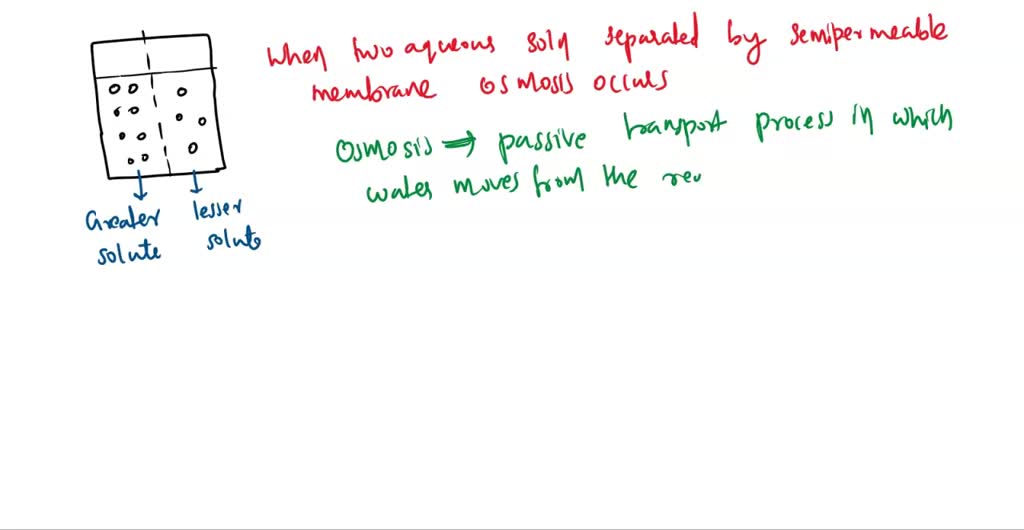 When two aqueous soln separated by semipermeable
membrane osmosis occurs
Osmosis → passive transport process in which
water moves from the
Greater
solute
lesser
solute